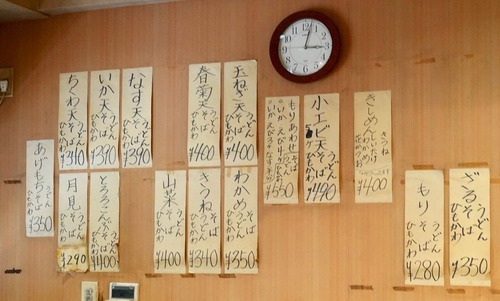 ざるそば
うどん
ひもかわ
¥350
もりそば
うどん
ひもかわ
¥280
きしめん
きつね
¥400
小エビ天そば
うどん
¥490
もりあわせそば
うどん
ひもかわ
¥550
玉ねぎ天そば
うどん
ひもかわ
¥400
春菊天そば
うどん
ひもかわ
¥400
わかめそば
うどん
ひもかわ
¥350
きつねそば
うどん
ひもかわ
¥340
山菜そば
うどん
ひもかわ
¥400
なす天そば
うどん
ひもかわ
¥390
いか天そば
うどん
ひもかわ
¥390
ちくわ天そば
うどん
ひもかわ
¥340
とろろこんぶそば
うどん
ひもかわ
¥400
月見そば
うどん
ひもかわ
¥290
あげもちそば
うどん
ひもかわ
¥350